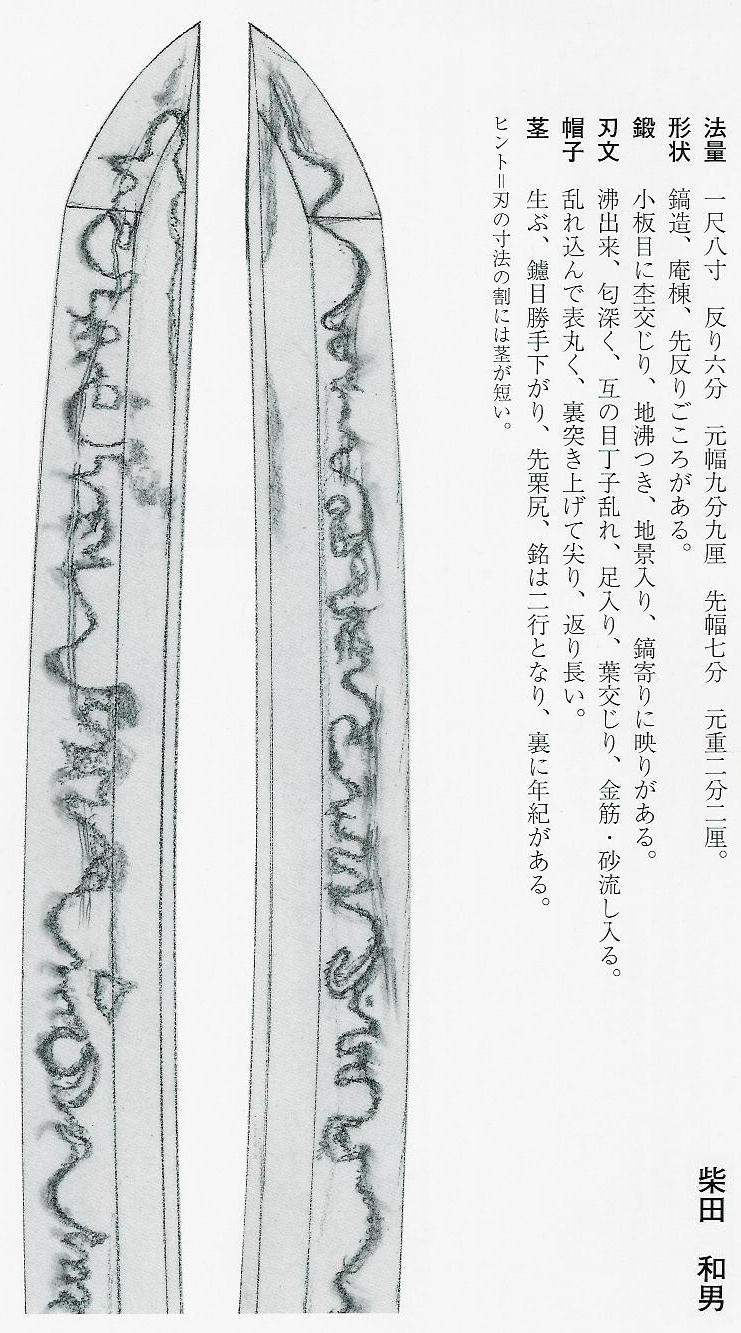 法量　一尺八寸　反り六分　元幅九分九厘　先幅七分　元重二分二厘。
形状　鎬造、庵棟、先反りごころがある。
鍛　小板目に杢交じり、地沸つき、地景入り、鎬寄りに映りがある。
刃文　沸出来、匂深く、互の目丁子乱れ、足入り、葉交じり、金筋・砂流し入る。
帽子　乱れ込んで表丸く、裏突き上げて尖り、返り長い。
茎　生ぶ、鑢目勝手下がり、先栗尻、銘は二行となり、裏に年紀がある。
ヒント＝刃の寸法の割には茎が短い。
柴田　和男